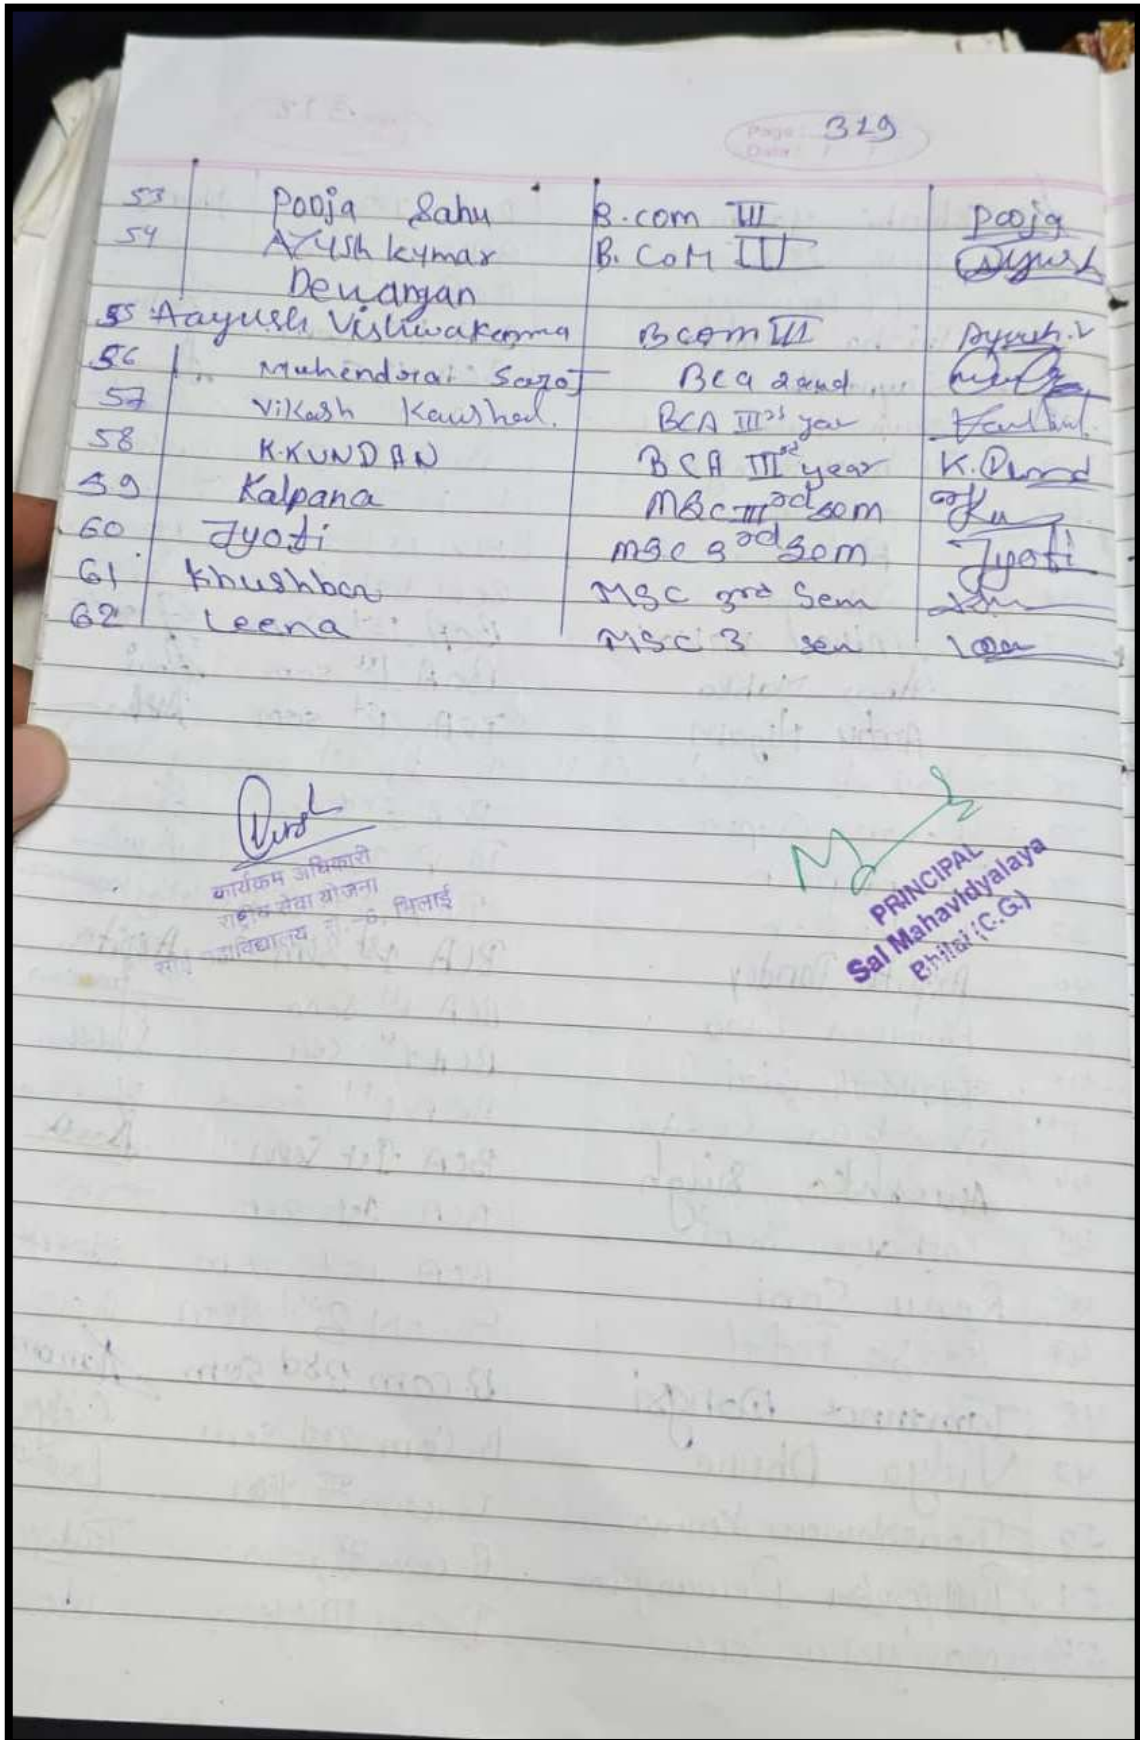 Page: 319
Date: / /
53 Pooja Sahu B.com III Pooja
54 Ayush kymar B. CoM III Ayush
Dewangan
55 Aayush Vishwakarma Bcom III Ayush.V
56 Mahendra Saroj BCA 2and
57 Vikash Kaushal. BCA III year Kaushal.
58 K.KUNDAN BCA III rd year K.
59 Kalpana MSc III rd sem
60 Jyoti MSc 3rd sem Jyoti
61 Khushboo MSC 3rd Sem
62 Leena MSC 3 sem
कार्यक्रम अधिकारी
राष्ट्रीय सेवा योजना
महाविद्यालय, से.-6, भिलाई
PRINCIPAL
Sai Mahavidyalaya
Bhilai (C.G)